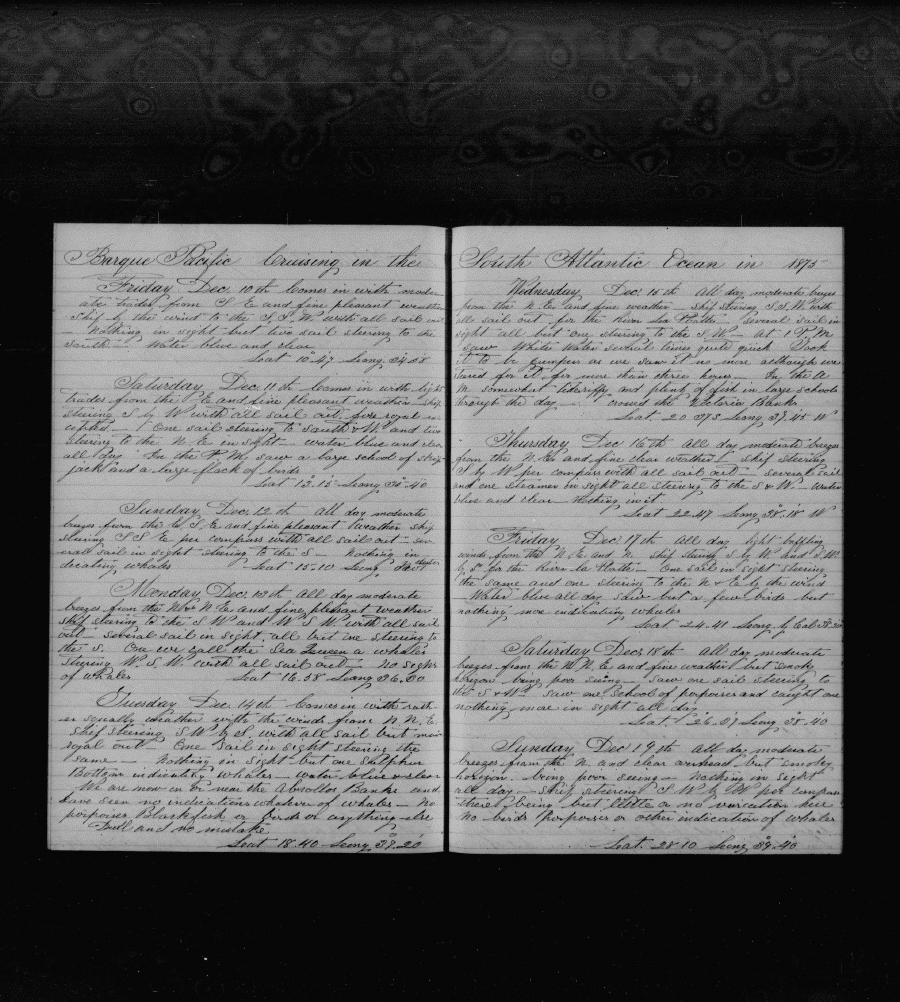 Barque Pacific Cruising in the
Friday Dec. 10th Comes in with moder
ate trades from S E and fine pleasant weather
Ship by the wind to the S S W with all sail out
Nothing in sight but two sail steering to the
south — Water blue and clear
Lat 10°.47 Long 34.58
Saturday Dec. 11th Comes in with light
trades from the S E and fine pleasant weather ship
steering S by W with all sail out, fore royal ex
cepted — One sail steering to South & W and two
steering to the N. E in sight — water blue and clear
all day In the P. M. saw a large school of skip
jack and a large flock of birds
Lat 13.15 Long 35.40
Sunday Dec. 12th all day moderate
breezes from the E S E and fine pleasant weather ship
steering S S E per compass with all sail out — sev
eral sail in sight steering to the S — Nothing in
dicating whales — Lat 15.10 Long
Monday Dec. 13th All day moderate
breezes from the N & N E and fine pleasant weather
ship steering to the S W and W S W with all sail
out — several sail in sight, all but one steering to
the S. One we call the Sea Queen a whaler
steering W. S. W. with all sail out — no signs
of whales Lat 16.58 Long 36.50
Tuesday Dec. 14th Comes in with rath-
er squally weather with the winds from N N. E.
Ship steering S W by S. with all sail but main
royal out — One sail in sight steering the
same — Nothing in sight but one Sulphur
Bottom indicating whales — water blue & clear
We are now in or near the Abrollos Banks and
have seen no indications whatever of whales — No
porpoises Blackfish or birds or anything else
Dull and no mistake
Lat 18.40 Long 37.20
South Atlantic Ocean in 1875
Wednesday Dec. 15th All day moderate breezes
from the N. E and fine weather ship steering S S W with
all sail out for the River La Platte Several sail in
sight all but one steering to the S W At 1 P. M.
saw White Water several times quite quick Took
it to be Gumpus as we saw it no more although we
for it for more than three hours — In the A
M somewhat tiderifty and plenty of fish in large schools
through the day — Crossed the Victoria Banks
Lat 20 37 S Long 37.45 W
Thursday Dec 16th All day moderate breezes
from the N. E and fine clear weather ship steering
S by W per compass with all sail out — several sail
and one steamer in sight all steering to the S & W — Water
blue and clear Nothing in it
Lat 22.47 Long 38.18 W
Friday Dec. 17th All day light baffling
winds from the N. E and N. ship steering S by W and S. W.
by S. for the River La Platte — One sail in sight steering
the same and one steering to the N & E by the wind
— Water blue all day Saw but a few birds but
nothing more indicating whales
Lat 24.41 Long by Cal 38.30
Saturday Dec 18th All day moderate
breezes from the N N. E and fine weather but smoky
horizon being poor seeing — Saw one sail steering to
the S & W Saw one School of porpoises and caught one
nothing more in sight all day
Lat 26.27 Long 38.40
Sunday Dec 19th All day moderate
breezes from the N. and clear overhead but smoky
horizon being poor seeing — Nothing in sight
all day — Ship steering S W by W per compass
there being but little or no variation here
No birds porpoises or other indication of whales
Lat. 28.10 Long 39.40